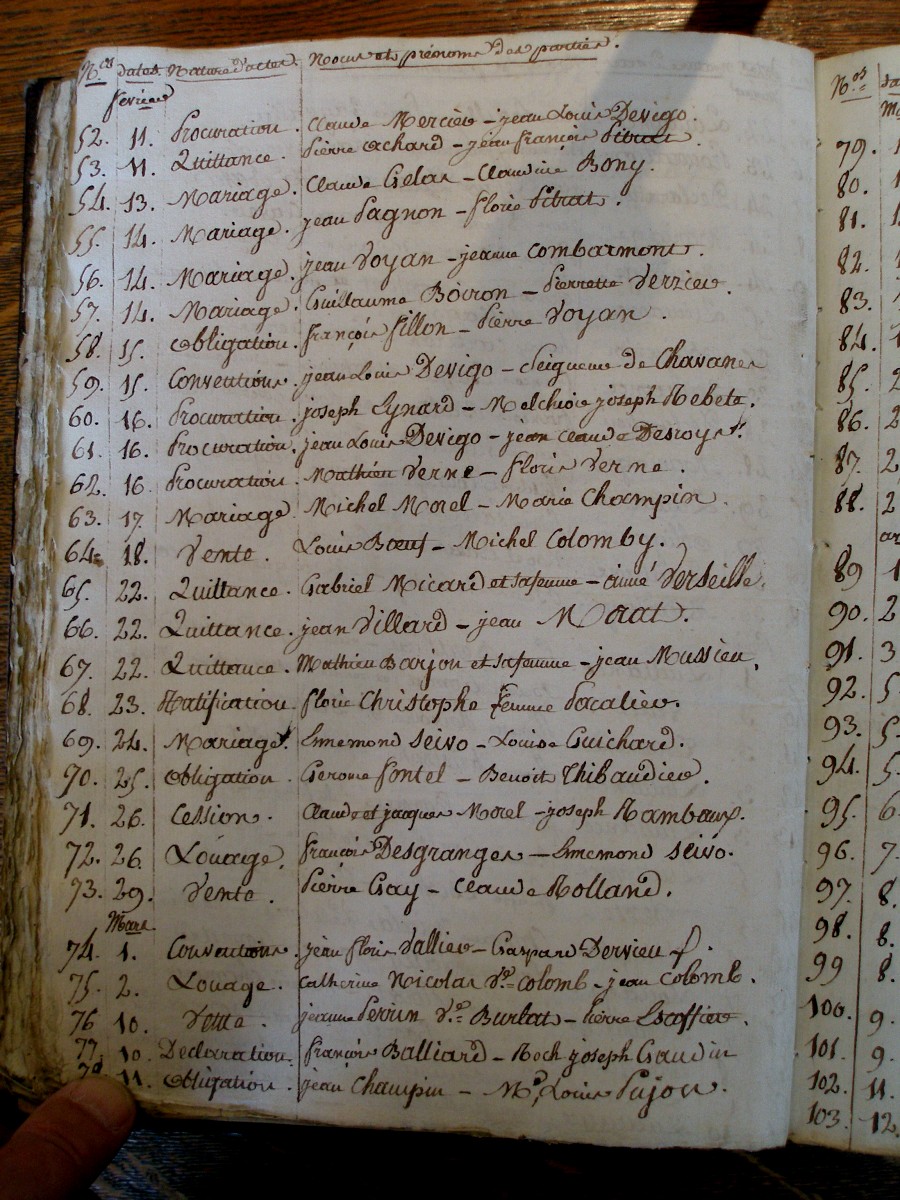 N.os dates. Nature d'actes. Noms et prénoms des parties.
février
52. 11. Procuration. Claude Mercier - jean Louis Devigo.
53. 11. Quittance. Pierre Achard - jean françois Pitrat
54. 13. Mariage. Claude Gelas - Claudine Bony.
55. 14. Mariage. jean Pagnon - florie Pitrat.
56. 14. Mariage. jean Voyan - jeanne Combarmont.
57. 14. Mariage. Guillaume Boiron - Pierrette Verzier.
58. 15. obligation. françois fillon - Pierre Voyan.
59. 15. Conventions. jean Louis Devigo - Seigneur de Chavanes
60. 16. Procuration. joseph Eynard - Melchior joseph Rebete.
61. 16. Procuration. jean Louis Devigo - jean Claude Desroys.
62. 16. Procuration. Mathieu Verne - floris Verne.
63. 17. Mariage. Michel Morel - Marie Champin.
64. 18. Vente. Louis Bœuf - Michel Colomby.
65. 22. Quittance. Gabriel Micard et sa femme - aimé Verseille.
66. 22. Quittance. jean Villard - jean Morat.
67. 22. Quittance. Mathieu Barjon et sa femme - jean Mussieu.
68. 23. Ratification. florie Christophe femme Pacalier.
69. 24. Mariage. Ennemond Seivo - Louise Guichard.
70. 25. obligation. Gerome fontel - Benoit Thibaudier.
71. 26. Cession. Claude et jacques Morel - joseph Rambaux.
72. 26. Loüage. françois Desgranges - Ennemond Seivo.
73. 29. Vente. Pierre Gay - Claude Rolland.
Mars
74. 1. Conventions. jean floris Vallier - Gaspard Dervieu f.
75. 2. Louage. Catherine Nicolas v.e Colomb - jean Colomb.
76 10. Vente. jeanne Perrin v.e Burlat - Pierre Escoffier.
77. 10. Declaration. françois Balliard - Roch joseph Gaudin
78 11. obligation. jean Champin - M.d Louis Pujos.
N.os
79.
80.
81.
82.
83.
84.
85. 2
86. 2
87. 2
88. 2
89 1
90. 2
91. 3
92. 5
93. 5.
94. 5.
95. 6
96. 7.
97. 8.
98. 8.
99 8.
100. 9.
101. 9.
102. 11.
103. 12.